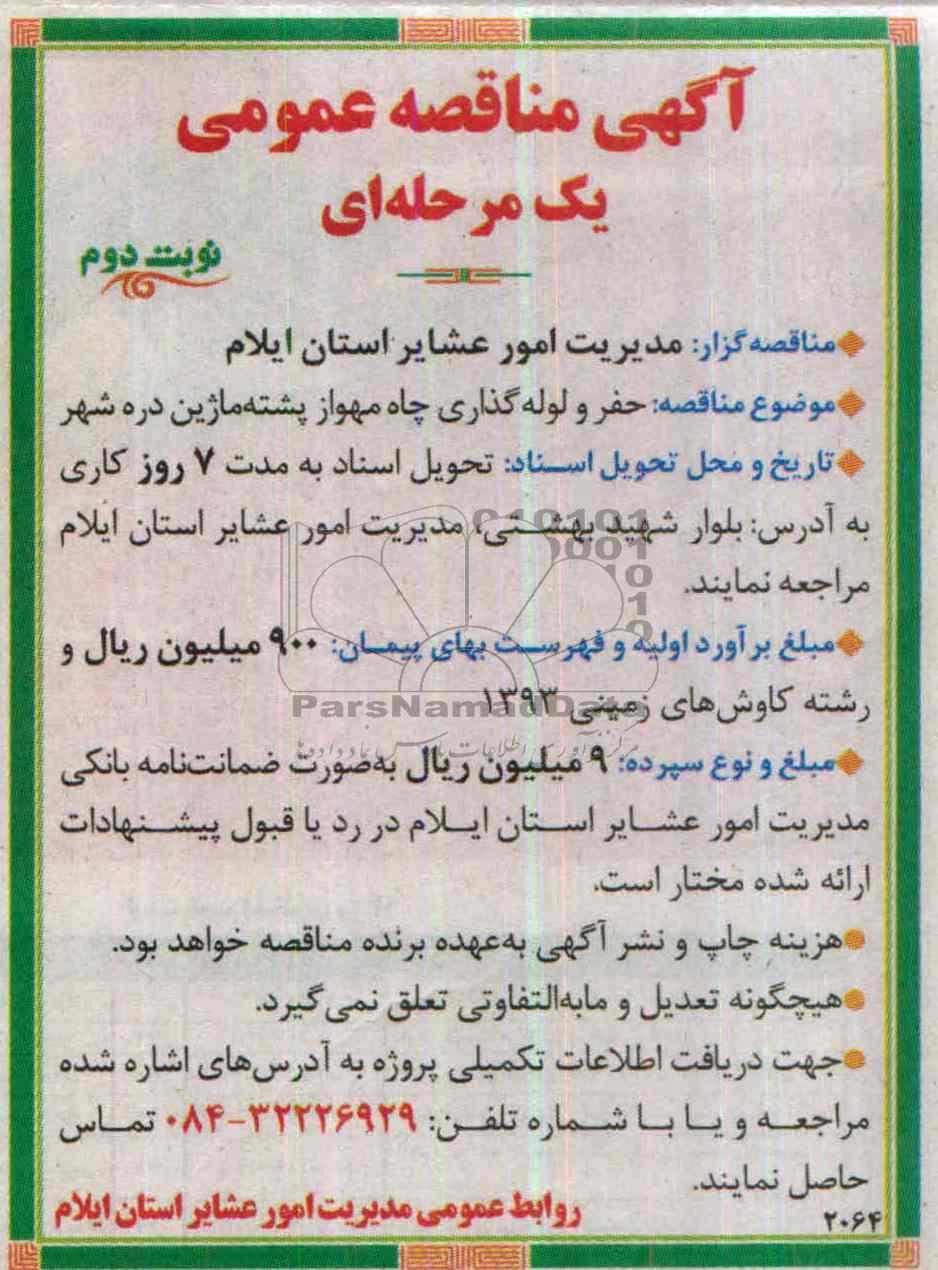 آگهی مناقصه عمومی
یک مرحله‌ای
نوبت دوم
مناقصه‌گزار: مدیریت امور عشایر استان ایلام
موضوع مناقصه: حفر و لوله‌گذاری چاه مهواز پشته‌ماژین دره شهر
تاریخ و محل تحویل اسناد: تحویل اسناد به مدت ۷ روز کاری
به آدرس: بلوار شهید بهشتی، مدیریت امور عشایر استان ایلام
مراجعه نمایند.
مبلغ برآورد اولیه و فهرست بهای پیمان: ۹۰۰ میلیون ریال و
رشته کاوش‌های زمینی ۱۳۹۳
ParsNamadData
مبلغ و نوع سپرده: ۹ میلیون ریال به‌صورت ضمانت‌نامه بانکی
مدیریت امور عشایر استان ایلام در رد یا قبول پیشنهادات
ارائه شده مختار است.
هزینه چاپ و نشر آگهی به‌عهده برنده مناقصه خواهد بود.
هیچگونه تعدیل و مابه‌التفاوتی تعلق نمی‌گیرد.
جهت دریافت اطلاعات تکمیلی پروژه به آدرس‌های اشاره شده
مراجعه و یا با شماره تلفن: ۰۸۴-۳۲۲۲۶۹۲۹ تماس
حاصل نمایند.
روابط عمومی مدیریت امور عشایر استان ایلام
۲۰۶۴